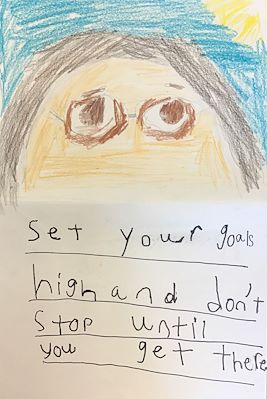 Set your goals
high and don't
Stop until
you get there